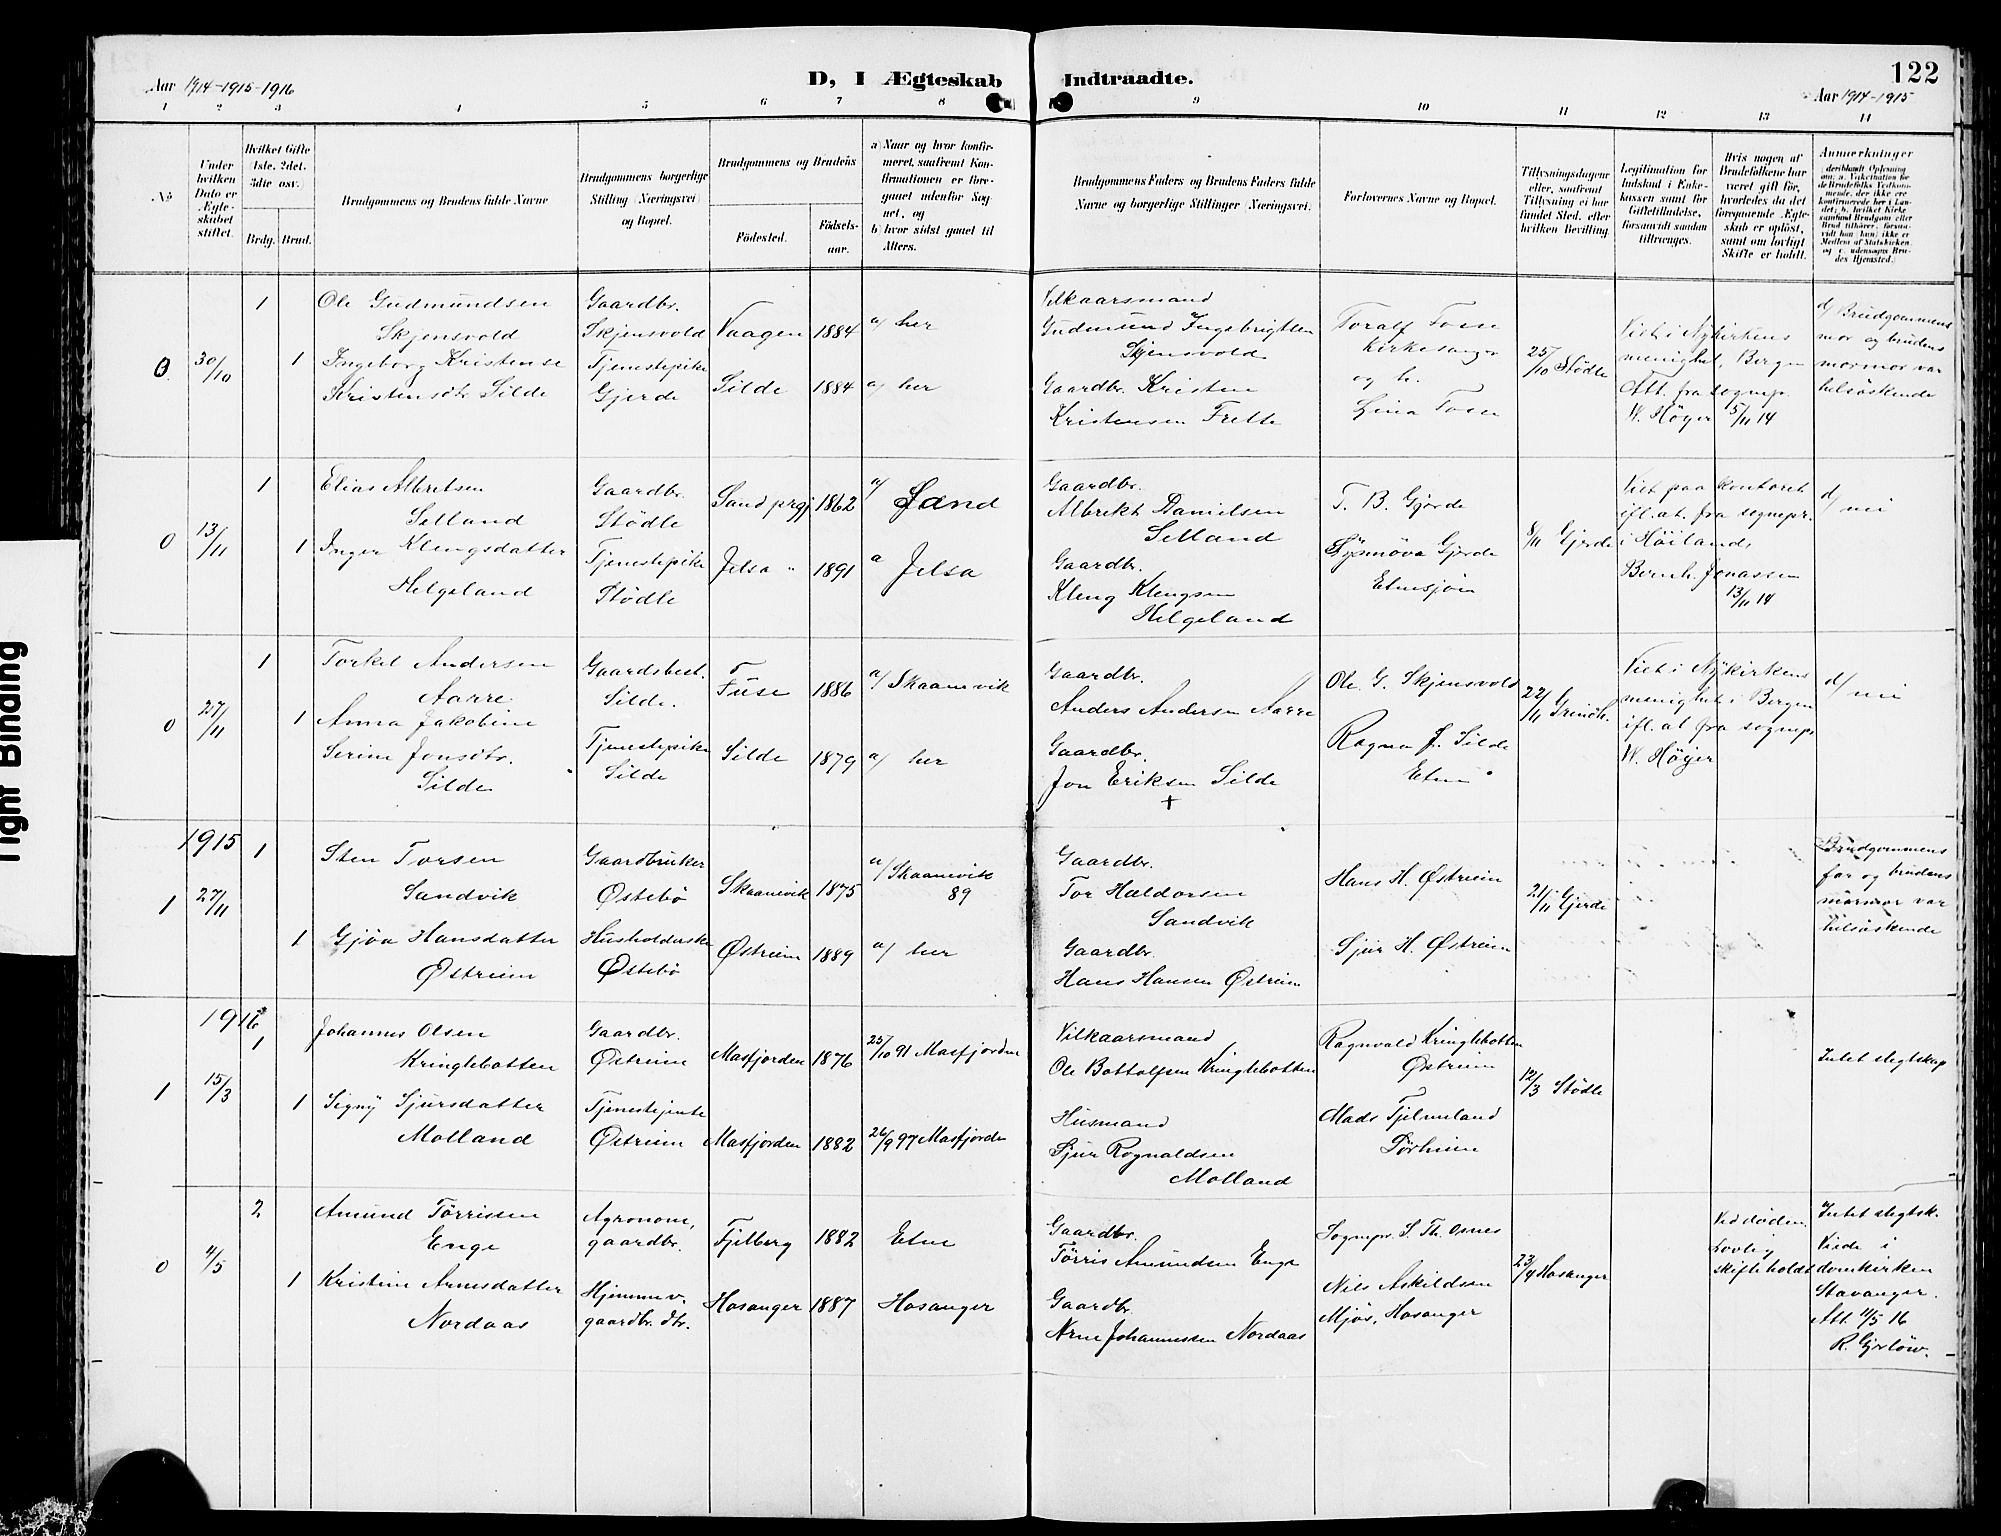 Aar 1914-1915-1916
D, I Ægteskab Indtraadte.
122
Aar 1914-1915
1 2 3 4 5 6 7 8 9 10 11 12 13 14
No
Under hvilken Dato er Ægteskabet stiftet.
Hvilket Gifte 1ste. 2det. 3die osv.)
Brdg. Brud.
Brudgommens og Brudens fulde Navne
Brudgommens borgerlige Stilling (Næringsvei) og Bopæl.
Brudgommens og Brudens
Fødested.
Fødsels-aar.
a) Naar og hvor konfirmeret, saafremt Konfirmationen er foregaaet udenfor Sognet, og
b) hvor sidst gaaet til Alters.
Brudgommens Faders og Brudens Faders fulde Navne og borgerlige Stillinger (Næringsvei).
Forlovernes Navne og Bopæl.
Tillysningsdagene eller, saafremt Tillysning ei har fundet Sted, efter hvilken Bevilling.
Legitimation for Indskud i Enkekassen samt for Giftetilladelse, forsaavidt saadan tiltrænges.
Hvis nogen af Brudefolkene har været gift før, hvorledes da det foregaaende Ægteskab er opløst, samt om lovligt Skifte er holdt.
Anmerkninger
0 30/10 1 1
Ole Gudmundsen
Skjensvold
Ingeborg Kristense
Kristensdtr Silde
Gaardbr.
Skjensvold
Tjenestepike
Gjerde
Vaagen 1884 a/ her
Silde 1884 a/ her
Vilkaarsmand
Gudmund Ingebrigtsen
Skjensvold
Gaardbr. Kristen
Kristensen Frette
Toralf Tosse
Kirkesanger
og h.
Lina Tosse
25/10 Stødle
Viet i Nykirkens
menighet, Bergen
Att. fra sognep.
W. Høyer 5/11 14
d/ Brudgommens
mor og brudens
mormor var
helsøskende
0 13/11 1 1
Elias Albretsen
Selland
Inger Klengsdatter
Helgeland
Gaardbr.
Stødle
Tjenestepike
Stødle
Sand prgj 1862 a/ Sand
Jelsa " 1891 a Jelsa
Gaardbr.
Albrekt Danielsen
Selland
Gaardbr.
Kleng Klengsen
Helgeland
T. B. Gjerde
Synnøva Gjerde
Etnesjøen
8/11 Gjerde
Viet paa kontoret
ifl. at. fra sognepr.
i Høiland,
Bernh. Jonassen
13/11 14
d/ nei
0 27/11 1 1
Torkel Andersen
Aarre
Anna Jakobine
Serine Jonsdtr.
Silde
Gaardsbest.
Silde.
Tjenestepike
Silde
Fuse 1886 a/ Skaanevik
Silde 1879 a/ her
Gaardbr.
Anders Andersen Aarre
Gaardbr.
Jon Eriksen Silde
+
Ole G. Skjensvold
Ragna J. Silde
Etne
22/11 Grindh.
Viet i Nykirkens
menighet i Bergen
ifl. at fra sognepr
W. Høyer
d/ nei
1915
1 27/11 1 1
Sten Torsen
Sandvik
Gjøa Hansdatter
Østreim
Gaardbruker
Østebø
Husholderske
Østebø
Skaanevik 1875 a/ Skaanevik
89
Østreim 1889 a/ her
Gaardbr.
Tor Haldorsen
Sandvik
Gaardbr.
Hans Hansen Østreim
Hans H. Østreim
Sjur H. Østreim
21/11 Gjerde
Brudgommens
far og brudens
mormor var
helsøskende
1916
1 15/3 1 1
Johannes Olsen
Kringlebotten
Signy Sjursdatter
Molland
Gaardbr.
Østreim
Tjenestejente
Østreim
Masfjorden 1876 25/10 91 Masfjorden
Masfjorden 1882 26/9 97 Masfjorden
Vilkaarsmand
Ole Bottolfsen Kringlebotten
Husmand
Sjur Rognaldsen
Molland
Ragnvald Kringlebotten
Østreim
Mads Tjelmeland
Sørheim
12/3 Stødle
Intet slegtskap
0 4/5 2 1
Amund Tørrissen
Enge
Kristine Arnesdatter
Nordaas
Agronom,
gaardbr.
Hjemmev.
gaardbr. dtr.
Fjelberg 1882 Etne
Hosanger 1887 Hosanger
Gaardbr.
Tørris Amundsen Enge
Gaardbr.
Arne Johannessen Nordaas
Sognepr. S. Th. Osnes
Nils Askildsen
Mjøs, Hosanger
23/4 Hosanger
Ved døden.
Lovlig
skifte holdt
Intet slegtsk.
Viede i
domkirken
Stavanger.
Att. 4/5 16
R. Gjerløw.
Tight Binding